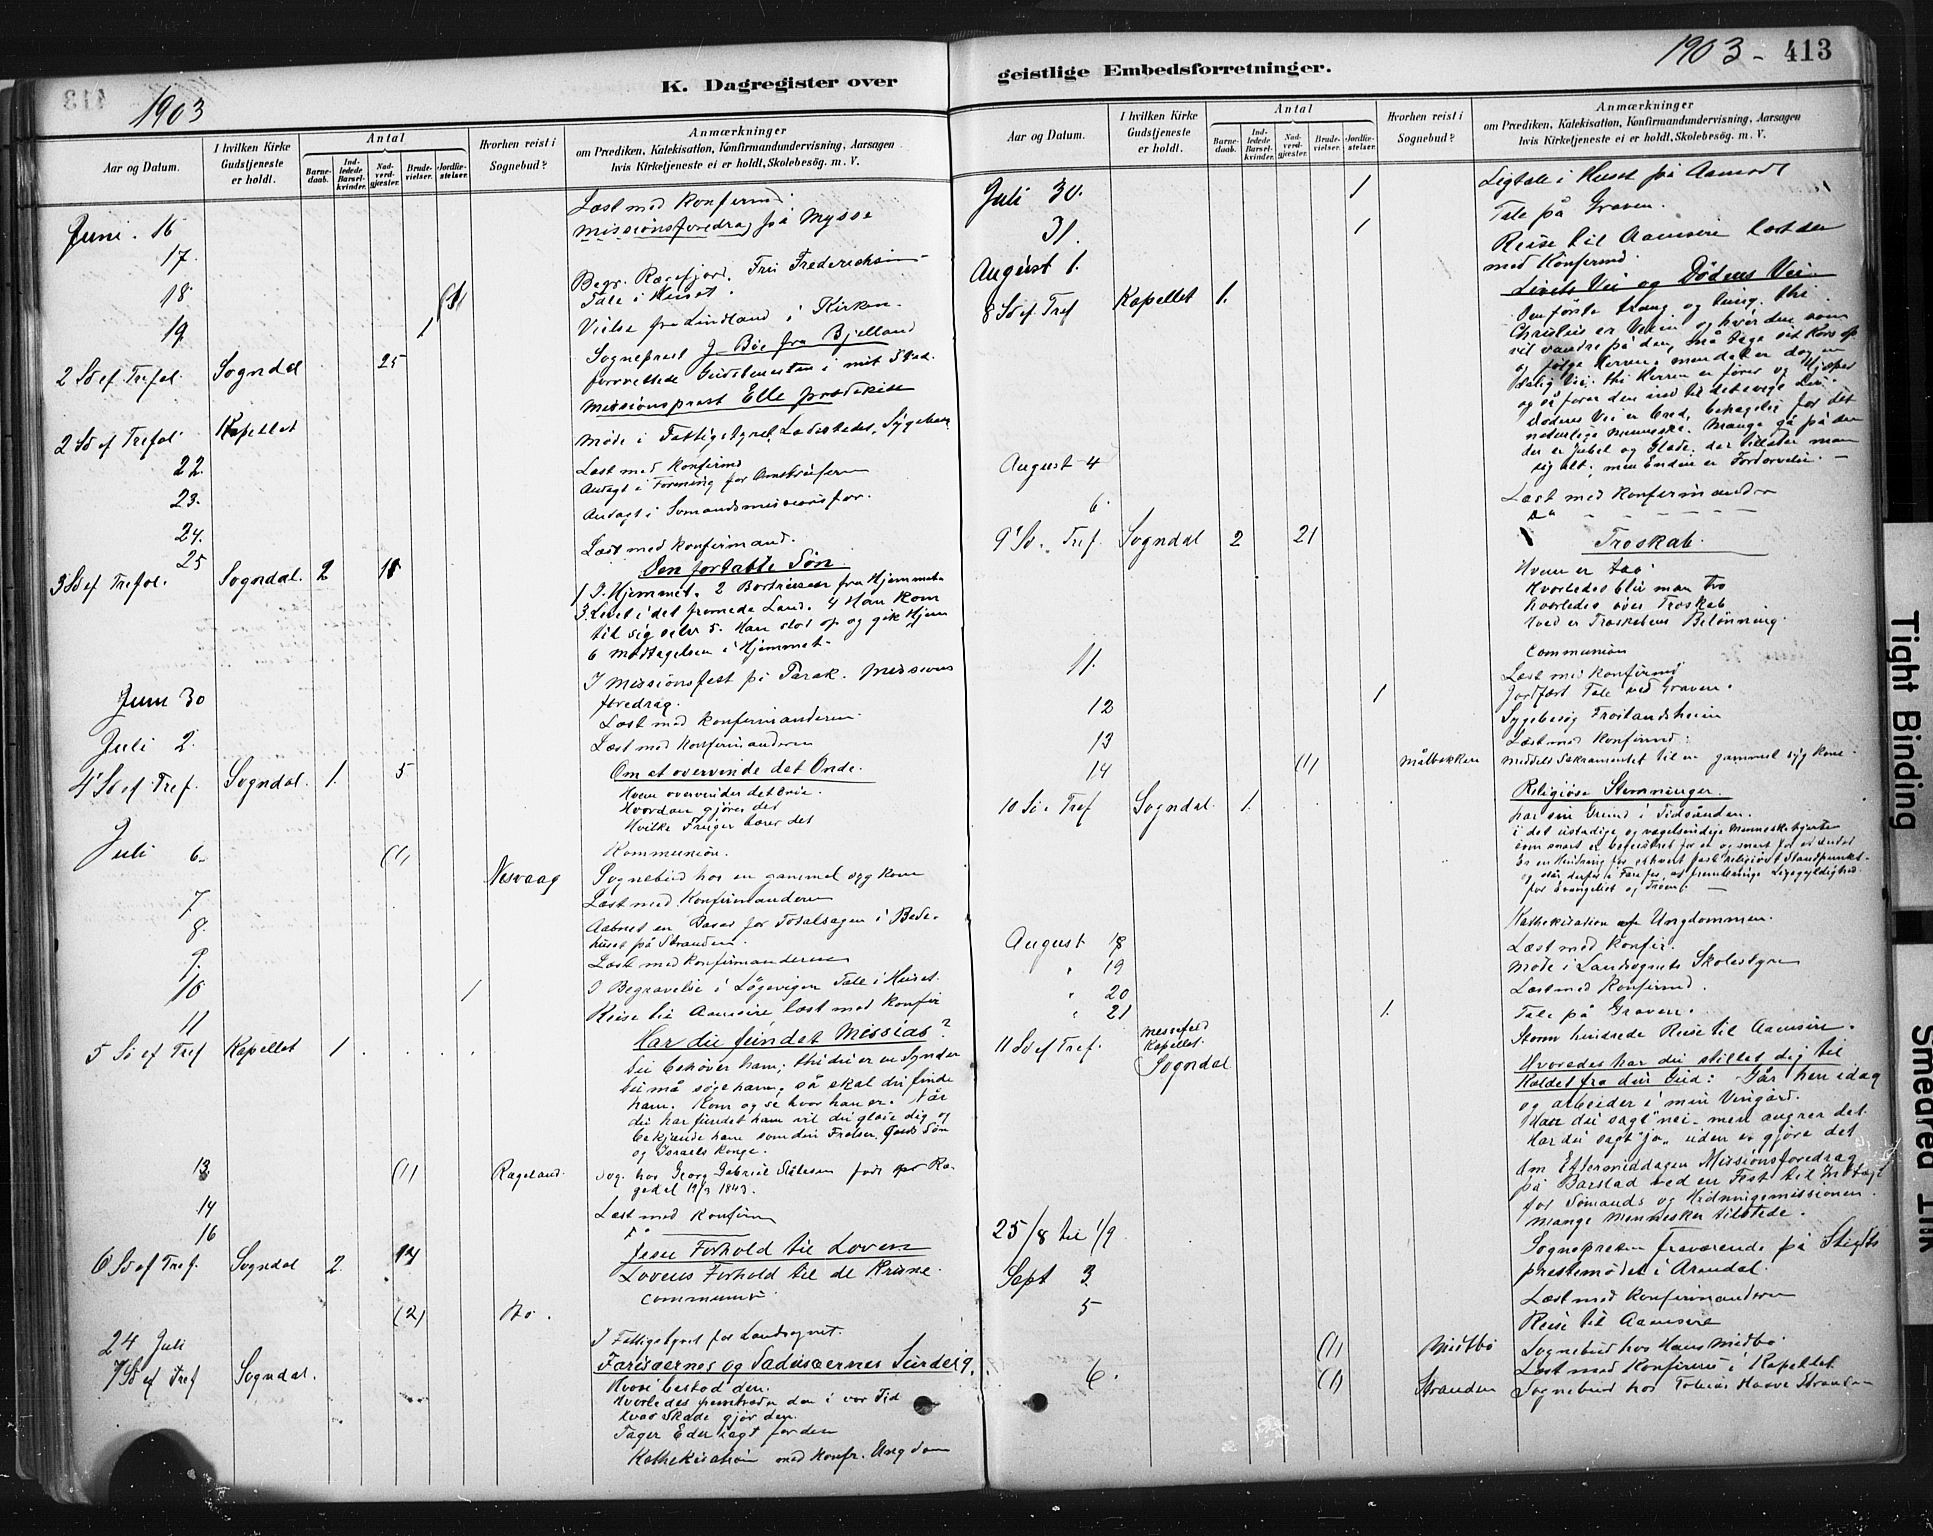 413
1903
K. Dagregister over
Aar og Datum.
I hvilken Kirke
Gudstjeneste
er holdt.
Antal
Barne-
daab.
Ind-
ledede
Barsel-
kvinder.
Nad-
verd-
gjæster.
Brude-
vielser.
Jordfæ-
stelser.
Hvorhen reist i
Sognebud?
Anmærkninger
om Prædiken, Katekisation, Konfirmandundervisning, Aarsagen
hvis Kirketjeneste ei er holdt, Skolebesög. m. V.
Juni. 16 Læst med Konfirmd
17. Missionsforedrag på Mysse
18 (1) Begr. Fru Frederichsen
Tale i Huset.
19. 1 Vielse fra Lindland i Kirken.
2 Sø ef Trefol. Sogndal 25 Sogneprest J Böe fra Bjelland
forrettede Gudstjenesten i mit Sted.
2 Sø ef Trefol. Kapellet Missionsprest Elle prædikede
22. Møde i Fattigstyret Ladestedet, Sygebesøg
23. Læst med Konfirmd
24. Andagt i Forening for
25 Andagt i Sømandsmissionsfor.
Læst med Konfirmand.
3 Sø ef Trefol. Sogndal. 2 Den fortabte Søn
1 I Hjemmet. 2 Bortreisen fra Hjemmet.
3. Livet i det fremede Land. 4 Han kom
til sig selv 5. Han stod op og gik Hjem
6 Modtagelsen i Hjemmet.
Juni 30 I Missionsfest på Missions
foredrag.
Juli 2. Læst med Konfirmanderne.
Læst med Konfirmanderne
4 Sø ef Tref. Sogndal. 1. 5 Om at overvinde det Onde.
Hvem overvinder det Onde.
Hvordan gjøres det
Hvilke Frugter bærer det
Kommunion.
Juli 6. (1) Nesvaag Sognebud hos en gammel syg kone
7. Læst med Konfirmanderne
8. Aabnet en Basar for Totalsagen i Bede-
huset på Stranden.
9. Læst med Konfirmanderne
10 1 I Begravelse i Løgevigen Tale i Huset
11 Reise til Aamsire læst med Konfir
5 Sø ef Tref Kapellet 1. Har du fundet Messias?
Du behøver ham; thi du er en Synder
Du må søge ham, så skal du finde
ham. Kom og se hvor han er. Når
du har fundet ham vil du glæde dig og
bekjende ham som din Frelser, Guds Søn
og Israels Konge.
13 (1) Rageland. Sog. hos Georg Gabriel
gedal 12/3 1843.
14 Læst med Konfirm
16
6 Sø ef Tref. Sogndal 2. Jesu Forhold til Loven
Lovens Forhold til de Kristne.
Communion
(2) Bø. I Fattigstyret for Landsognet.
24 Juli
7 Sø ef Tref Sogndal. Farisæernes og Sadusæernes Surdeig.
Hvori bestod den.
Hvorledes fremtræder den i vor Tid
Hvad Skade gjør den.
Tager Eder iagt for den
Kathekisation med Konfr. Ungdom
geistlige Embedsforretninger.
1903 - 413
Aar og Datum.
I hvilken Kirke
Gudstjeneste
er holdt.
Antal
Barne-
daab.
Ind-
ledede
Barsel-
kvinder.
Nad-
verd-
gjæster.
Brude-
vielser.
Jordfæ-
stelser.
Hvorhen reist i
Sognebud?
Anmærkninger
om Prædiken, Katekisation, Konfirmandundervisning, Aarsagen
hvis Kirketjeneste ei er holdt, Skolebesög. m. V.
Juli 30. 1 Ligtale i Huset på Aamodt
31. 1 Tale på Graven.
August 1. Reise til Aamsire læst der
med Konfirmd.
8 Sø ef Tref Kapellet 1. Livets Vei og Dødens Vei.
Den første trang og tung. thi
Christus er Veien og hver den som
vil vandre på den, må tage sit Kors op
og følge Herren, men det er dog en
salig Vei. thi Herren er fører og Hjælper
og så fører den ind til det evige Liv.
Dødens Vei er bred, behagelig for det
naturlige Menneske. Mange gå på den
der er Jubel og Glæde, der tillader man
sig Alt. men Enden er Fordærvelse. -
August 4 Læst med Konfirmander
6. Do
9 Sø. Tref. Sogndal 2 21 Troskab.
Hvem er tro
Hvorledes bliv man tro
hvorledes øves Troskab
Hvad er Troskabens Belønning.
Communion
11. Læst med Konfirmd
12 1 Jordfæst Tale ved Graven.
13 Sygebesøg Frøilandsheien
Læst med Konfirmd.
14 (1) Målbakken Meddelt Sakramentet til en gammel syg kone.
10 Sø. Tref Sogndal. 1. Religiøse Stemninger.
har sin Grund i Tidsånden.
i det ustadige og vægelsindige Menneskehjerte
som snart er begeistret for et og snart for et andet
Er en Hindring for ethvert fast religiøst Standpunkt.
for Evangeliet og Troen. -
Kathekisation af Ungdommen.
August 18 Læst med Konfir.
" 19 Møde i Landsognets Skolestyre
" 20 Læst med Konfirmd.
" 21 1. Tale på Graven.
Storm hindrede Reise til Aamsire.
11 Sø ef Tref. Messefald
Kapellet.
Sogndal Hvorledes har du stillet dig til
Kaldet fra din Gud: Går hen idag
og arbeider i min Vingård.
Har du sagt "nei" men angrer det.
Har du sagt "ja" uden at gjøre det
Om Eftermiddagen Missionsforedrag
på Barstad ved en Fest til Indtægt
for Sømands og Hedningemissionen.
Mange Mennesker tilstede.
25/8 til 1/9 Sognepresten fraværende på Stifts
prestemødet i Arendal.
Sept 3. Læst med Konfirmanderne
5 Reise til Aamsire
(1) Midtbø Sognebud hos Hans Midbø.
6. Læst med Konfirmd i Kapellet
(1) Stranden Sognebud hos Tobias Haave Stranden
Tight Binding
Smeared Ink